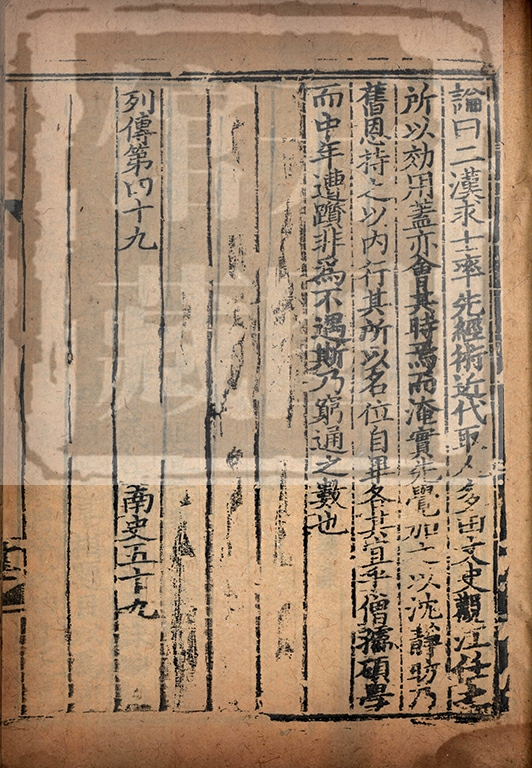 論曰二漢求士率先經術近代取人多由文史觀江任之
所以効用蓋亦會其時焉而淹實先覺加之以沈靜昉乃
舊恩持之以內行其所以名位自畢各其宜乎僧孺碩學
而中年遭躓非爲不遇斯乃窮通之數也
列傳第四十九
南史五十九